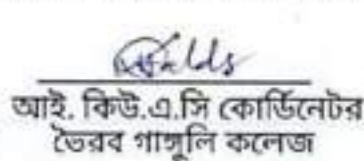 আই. কিউ.এ.সি কোর্ডিনেটর
ভৈরব গাঙ্গুলি কলেজ